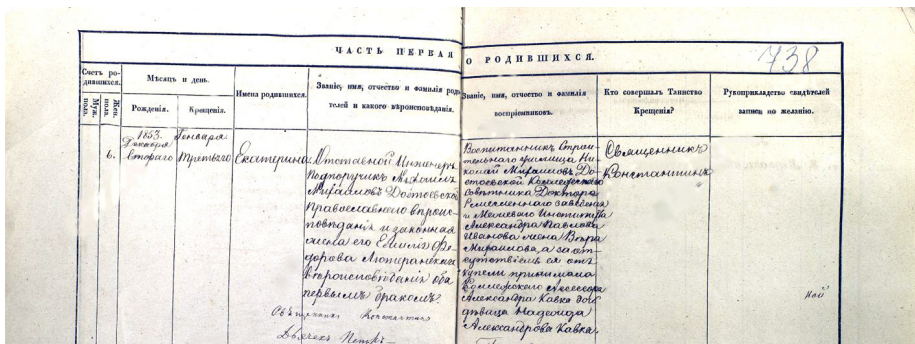 ЧАСТЬ ПЕРВАЯ
О РОДИВШИХСЯ.
738
Счетъ родившихся.
Муж. пола.
Жен. пола.
Мѣсяцъ и день.
Рожденія.
Крещенія.
Имена родившихся.
Званіе, имя, отчество и фамилія родителей и какого вѣроисповѣданія.
Званіе, имя, отчество и фамилія
воспріемниковъ.
Кто совершалъ Таинство
Крещенія?
Рукоприкладство свидѣтелей
записи по желанію.
6.
1853.
Декабря
втораго
Генваря
третьяго
Екатерина
Отставной Инженеръ
Подпоручикъ Михаилъ
Михаиловъ Достоевской
Православнаго вѣроис-
повѣданія и законная
жена его Емилія Фе-
дорова Лютеранскаго
вѣроисповѣданія оба
первымъ бракомъ.
Воспитанникъ Строи-
тельнаго училища Ни-
колай Михаиловъ До-
стоевской Коллежскаго
Совѣтника Доктора
Ремесленнаго заведенія
и Межеваго Института
Александра Павлова
Иванова жена Вѣра
Михаилова, а за от-
сутствіемъ ея отъ
купели принимала
Коллежскаго Ассесора
Александра Кавка дочь
дѣвица Надежда
Александрова Кавка.
Священникъ
Константинъ
Дьячекъ Петръ